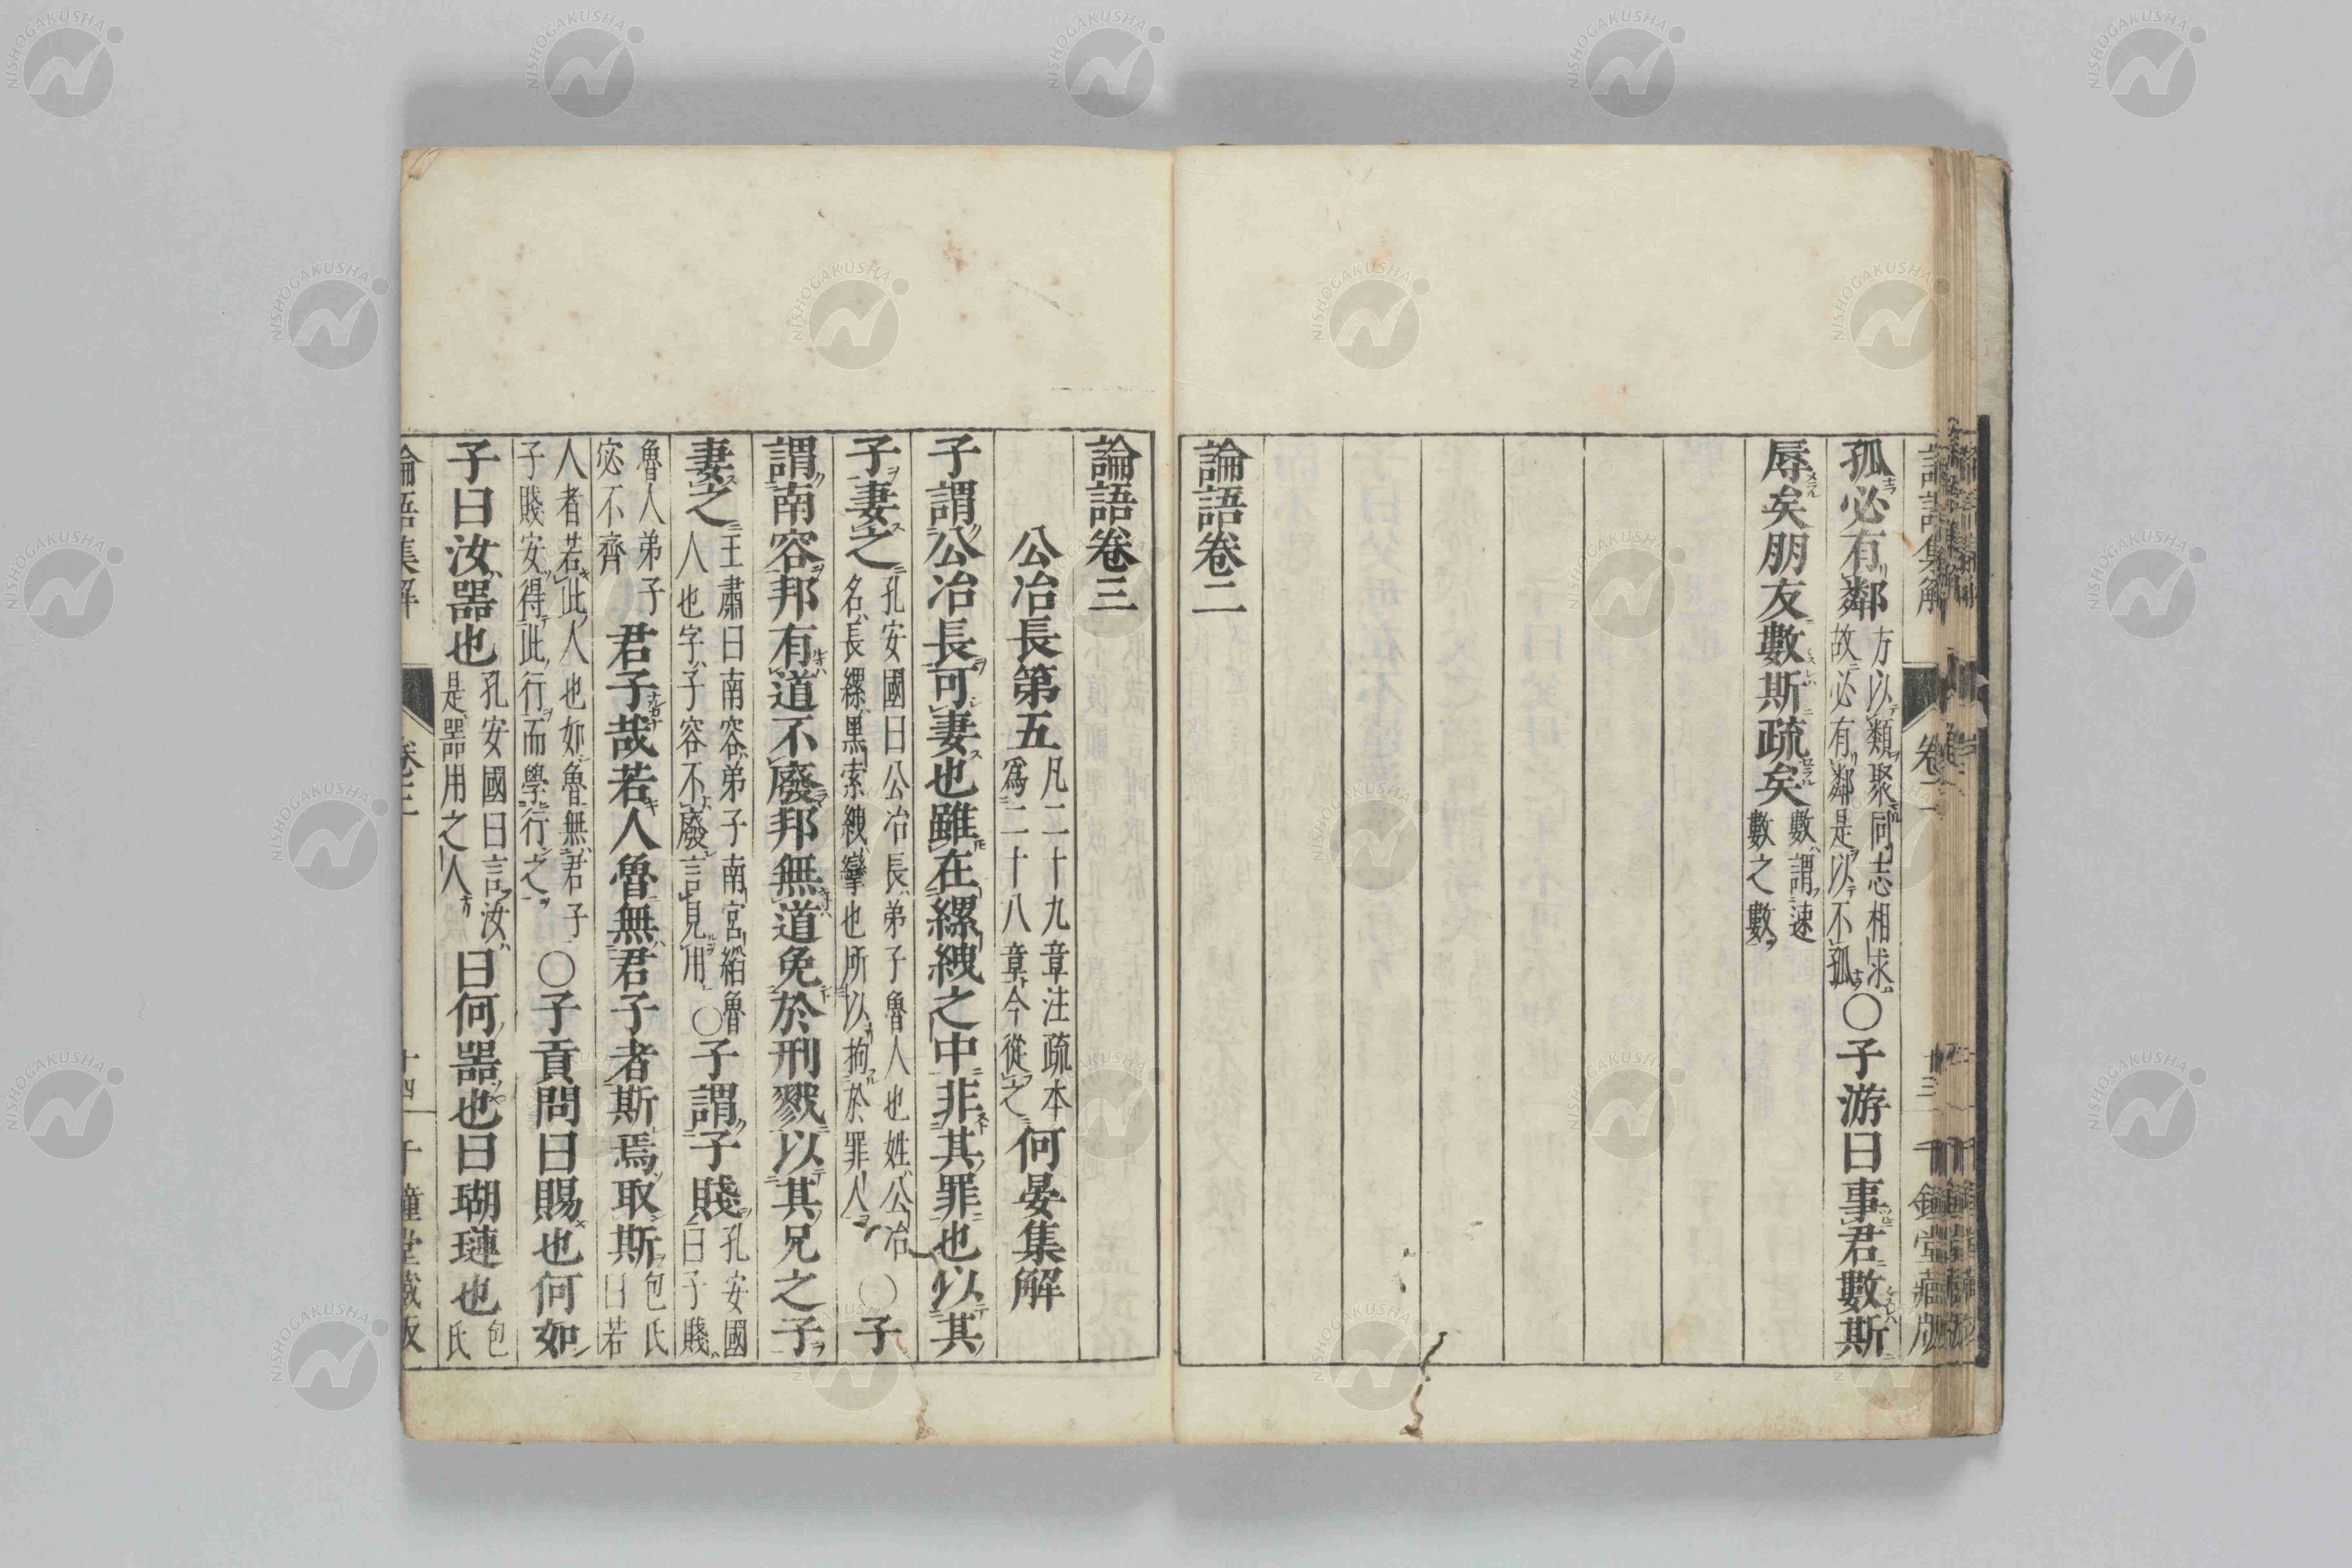 論語集解 卷二 十三 千鍾堂藏版
孤必有鄰方以類聚同志相求故必有鄰是以不孤〇子游曰事君數斯
辱矣朋友數斯疏矣數謂速數之數
論語卷二
論語卷三
公冶長第五凡二十九章注疏本爲二十八章今從之何晏集解
子謂公冶長可妻也雖在縲絏之中非其罪也以其
子妻之孔安國曰公冶長弟子魯人也姓公冶名長縲黑索絏攣也所以拘於罪人〇子
謂南容邦有道不廢邦無道免於刑戮以其兄之子
妻之王肅曰南容弟子南宮縚魯人也字子容不廢言見用〇子謂子賤孔安國曰子賤
魯人弟子宓不齊君子哉若人魯無君子者斯焉取斯包氏曰若
人者若此人也如魯無君子子賤安得此行而學行之〇子貢問曰賜也何如
子曰汝器也孔安國曰言汝是器用之人曰何器也曰瑚璉也包氏
論語集解 卷三 十四 千鍾堂藏版
NISHOGAKUSHA